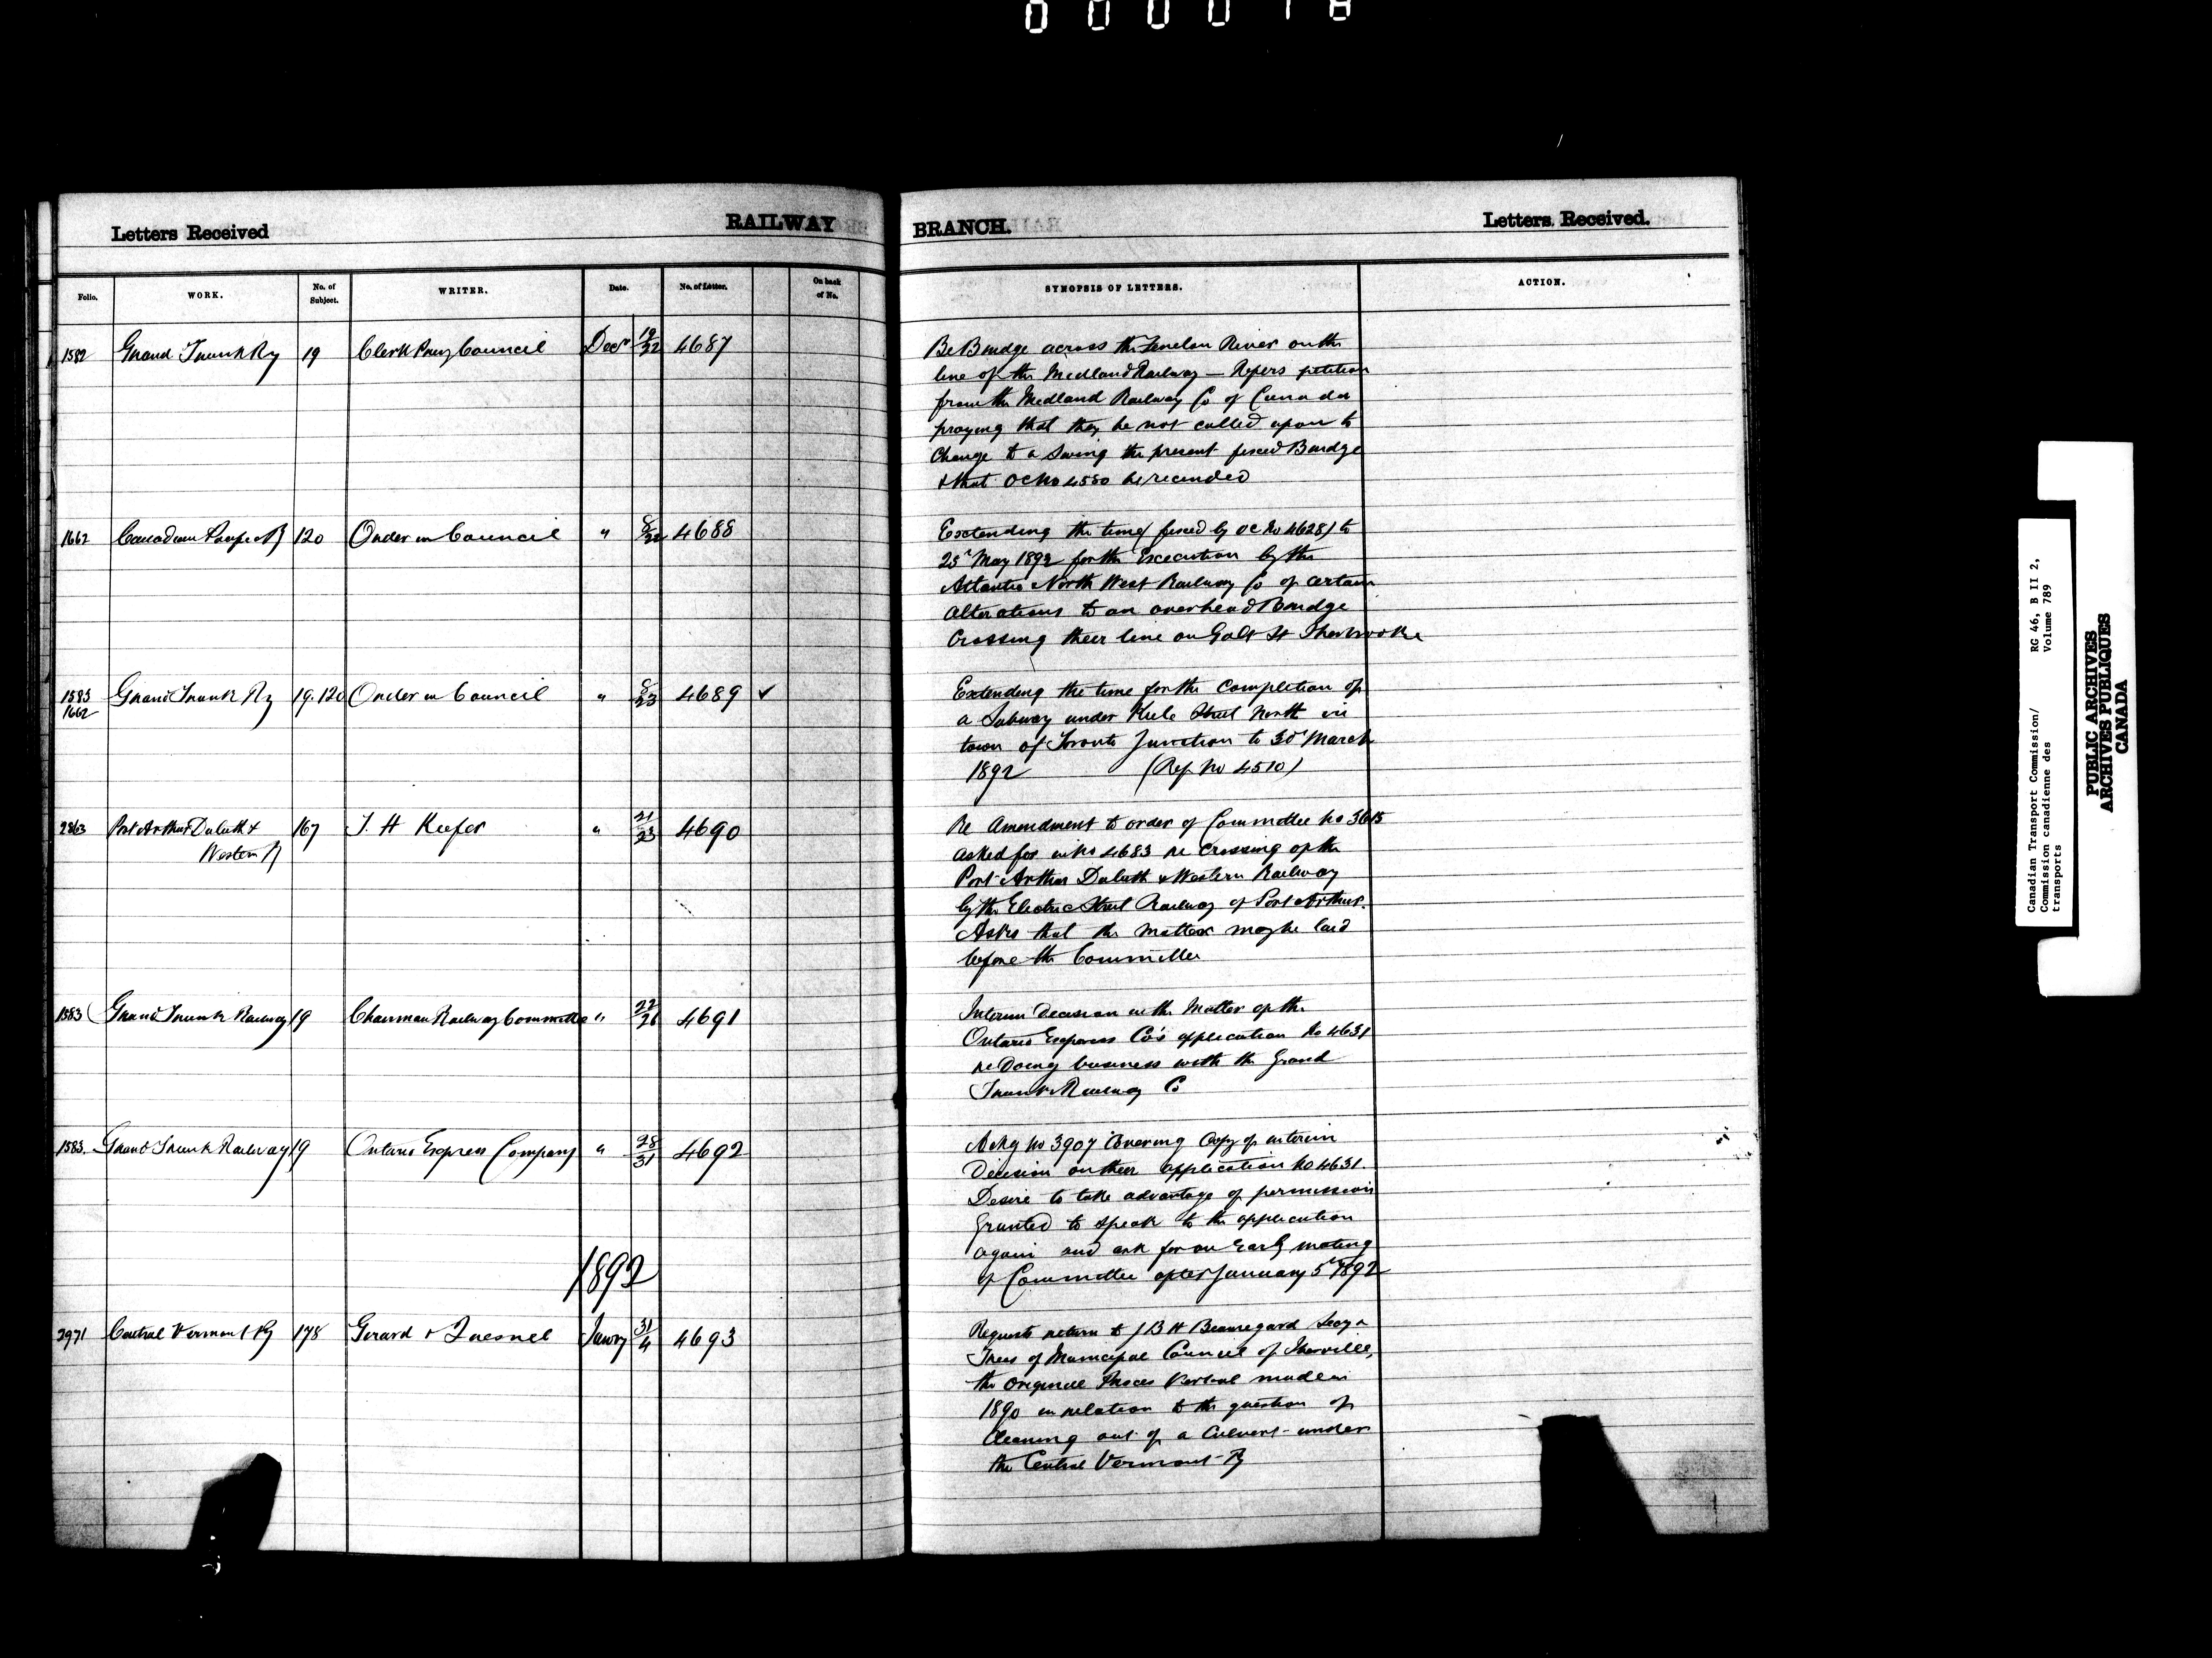 000018
Letters Received RAILWAY BRANCH. Letters Received.
Folio. WORK. No. of Subject. WRITER. Date. No. of Letter. On back of No. SYNOPSIS OF LETTERS. ACTION.
1582 Grand Trunk Ry 19 Clerk Privy Council Decr 19/22 4687
Re Bridge across the Fenelon River on the
line of the Midland Railway — Refers petition
from the Midland Railway Co of Canada
praying that they be not called upon to
Change to a Swing the present fixed Bridge
& that OC No 4550 be recinded
1662 Canadian Pacific Ry 120 Order in Council " 8/22 4688
Extending the time (fixed by OC No 4628) to
25th May 1892 for the Execution by the
Atlantic North West Railway Co of certain
alterations to an overhead Bridge
Crossing their line on Galt St Sherbrooke
1583 1662 Grand Trunk Ry 19.120 Order in Council " 8/23 4689 ✓
Extending the time for the completion of
a Subway under Keele Street North in
town of Toronto Junction to 30th March
1892 (Ref No 4510)
2863 Port Arthur Duluth &
Western Ry 167 T. H Keefer " 21/23 4690
Re Amendment to order of Committee No 3615
asked for in No 4683 re Crossing of the
Port Arthur Duluth & Western Railway
by the Electric Street Railway of Port Arthur.
Asks that the matter may be laid
before the Committee
1583 Grand Trunk Railway 19 Chairman Railway Committee " 22/26 4691
Interim Decision in the Matter of the
Ontario Express Co's application No 4631
re Doing business with the Grand
Trunk Railway Co
1583 Grand Trunk Railway 19 Ontario Express Company " 28/31 4692
Ackg No 3907 Covering Copy of interim
Decision on their application No 4631.
Desire to take advantage of permission
Granted to speak to the application
again and ask for an Early meeting
of Committee after January 5th 1892
1892
2971 Central Vermont Ry 178 Girard & Jany 31/4 4693
Requests return to J B H Beauregard Secy &
Treas of Municipal Council of Iberville,
the original Proces Verbal made in
1890 in relation to the question of
Cleaning out of a Culvert under
the Central Vermont Ry
Canadian Transport Commission/ RG 46, B II 2,
Commission canadienne des Volume 789
transports
PUBLIC ARCHIVES
ARCHIVES PUBLIQUES
CANADA